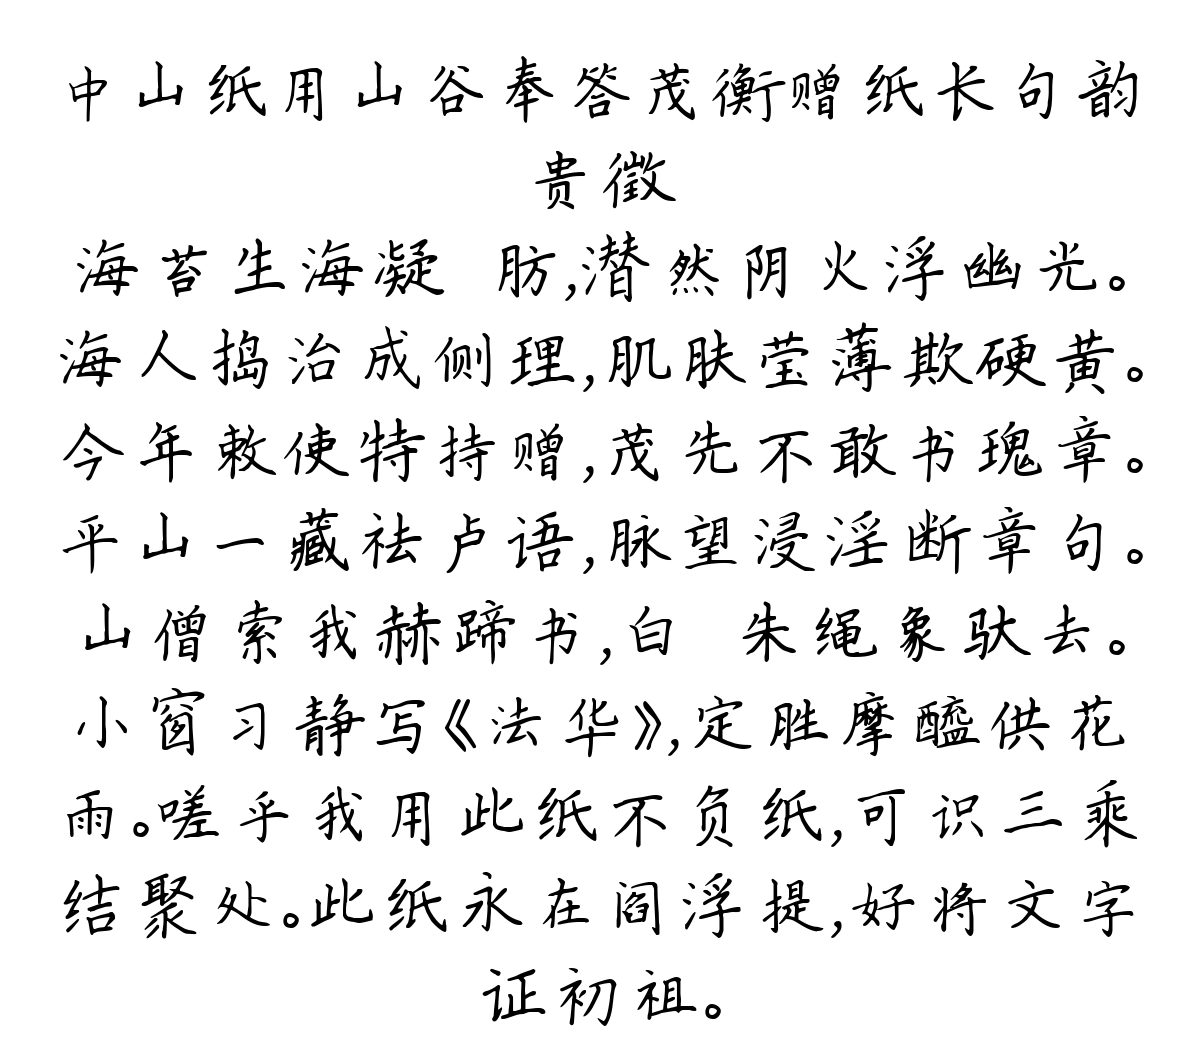 中山纸用山谷奉答茂衡赠纸长句韵
贵徵
海苔生海凝 肪,潜然阴火浮幽光。
海人捣治成侧理,肌肤莹薄欺硬黄。
今年敕使特持赠,茂先不敢书瑰章。
平山一藏祛卢语,脉望浸淫断章句。
山僧索我赫蹄书,白 朱绳象驮去。
小窗习静写《法华》,定胜摩醯供花
雨。嗟乎我用此纸不负纸,可识三乘
结聚处。此纸永在阎浮提,好将文字
证初祖。